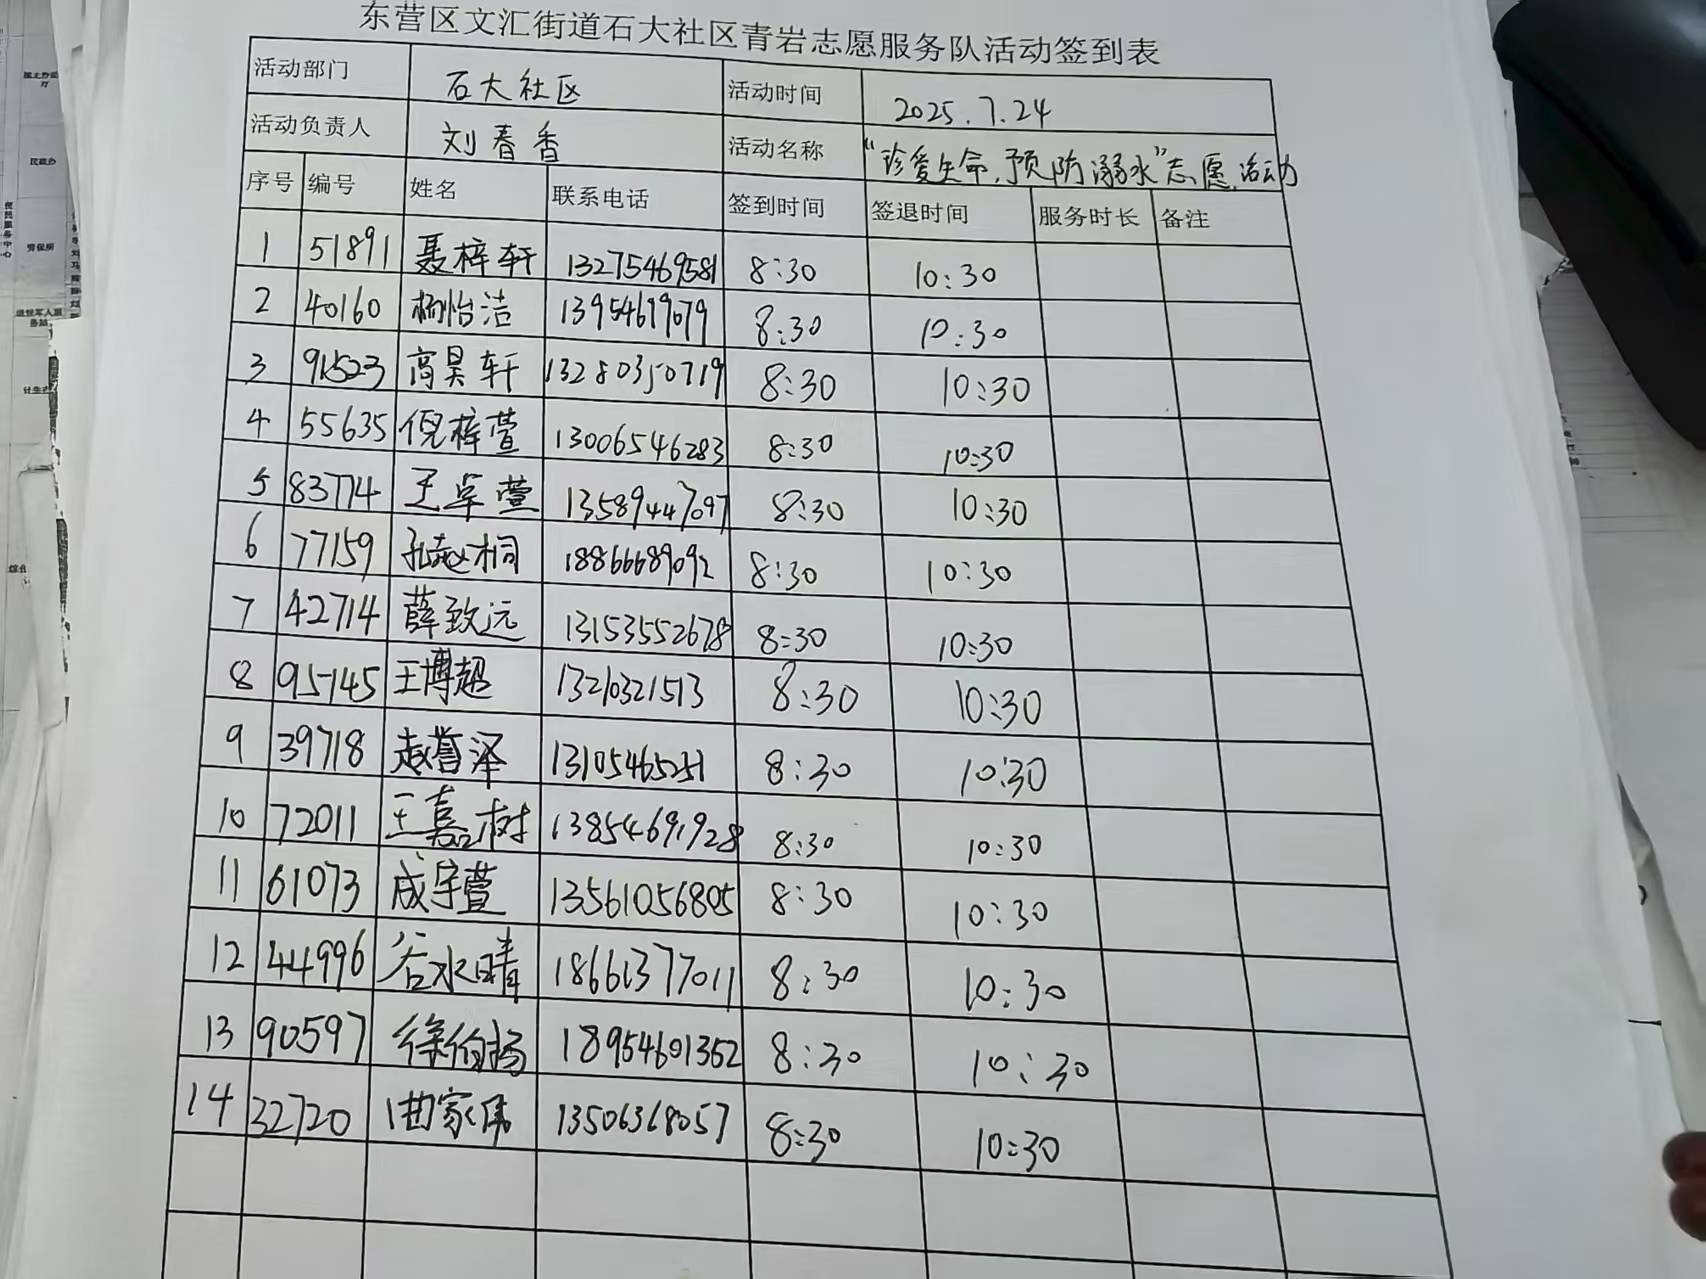 东营区文汇街道石大社区青岩志愿服务队活动签到表
活动部门 石大社区 活动时间 2025.7.24
活动负责人 刘春香 活动名称 “珍爱生命，预防溺水”志愿活动
序号 编号 姓名 联系电话 签到时间 签退时间 服务时长 备注
1 51891 聂梓轩 13275469581 8:30 10:30
2 40160 杨怡洁 13954679079 8:30 10:30
3 91523 高昊轩 13280350719 8:30 10:30
4 55635 倪梓萱 13006546283 8:30 10:30
5 83774 王卓萱 13589447097 8:30 10:30
6 77159 孔赵桐 18866689092 8:30 10:30
7 42714 薛致远 13153552678 8:30 10:30
8 95145 王博超 13210321513 8:30 10:30
9 39718 赵誉泽 13105465251 8:30 10:30
10 72011 王嘉树 13854691928 8:30 10:30
11 61073 成宇萱 13561056805 8:30 10:30
12 44996 谷水晴 18661377011 8:30 10:30
13 90597 徐伯扬 18954601352 8:30 10:30
14 32720 曲家伟 13506368057 8:30 10:30